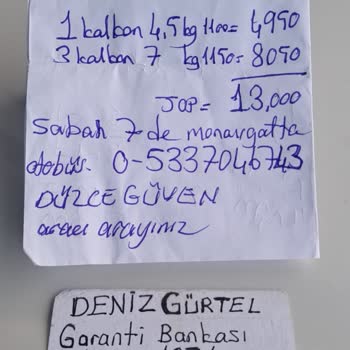 1 kalkan 4,5 kg 1100= 4,950
3 kalkan 7 kg 1150= 8050
TOP= 13,000
Sabah 7 de manavgatta
otobüs. 0-5337046743
DÜZCE GÜVEN
aracı arayınız
DENİZ GÜRTEL
Garanti Bankası